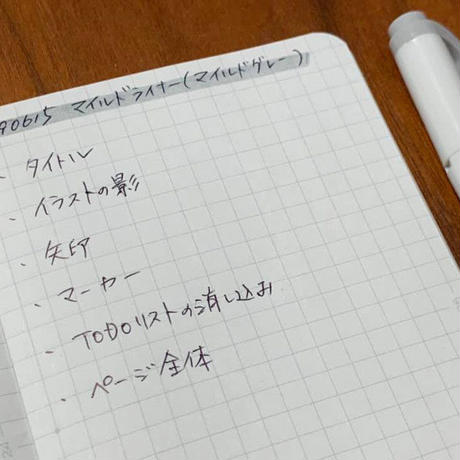 90615 マイルドライナー(マイルドグレー)
・タイトル
・イラストの影
・矢印
・マーカー
・TODOリストの消し込み
・ページ全体